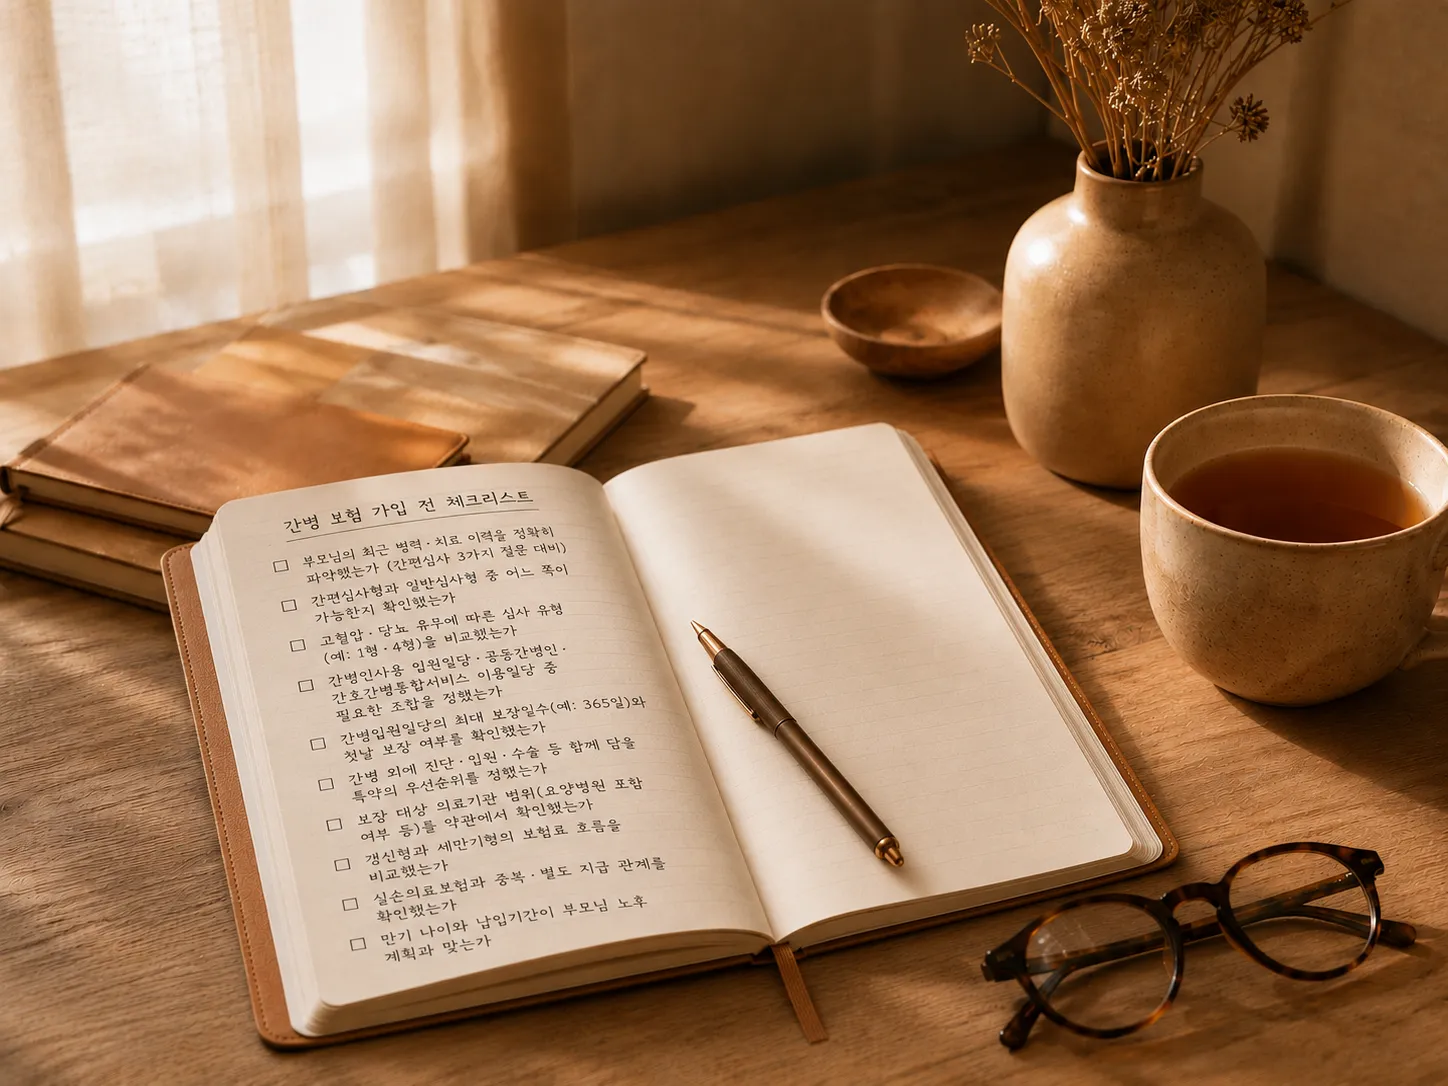 간병 보험 가입 전 체크리스트
부모님의 최근 병력·치료 이력을 정확히
파악했는가 (간편심사 3가지 질문 대비)
간편심사형과 일반심사형 중 어느 쪽이
가능한지 확인했는가
고혈압·당뇨 유무에 따른 심사 유형
(예: 1형·4형)을 비교했는가
간병인사용 입원일당·공동간병인·
간호간병통합서비스 이용일당 중
필요한 조합을 정했는가
간병입원일당의 최대 보장일수(예: 365일)와
첫날 보장 여부를 확인했는가
간병 외에 진단·입원·수술 등 함께 담을
특약의 우선순위를 정했는가
보장 대상 의료기관 범위(요양병원 포함
여부 등)를 약관에서 확인했는가
갱신형과 세만기형의 보험료 흐름을
비교했는가
실손의료보험과 중복·별도 지급 관계를
확인했는가
만기 나이와 납입기간이 부모님 노후
계획과 맞는가